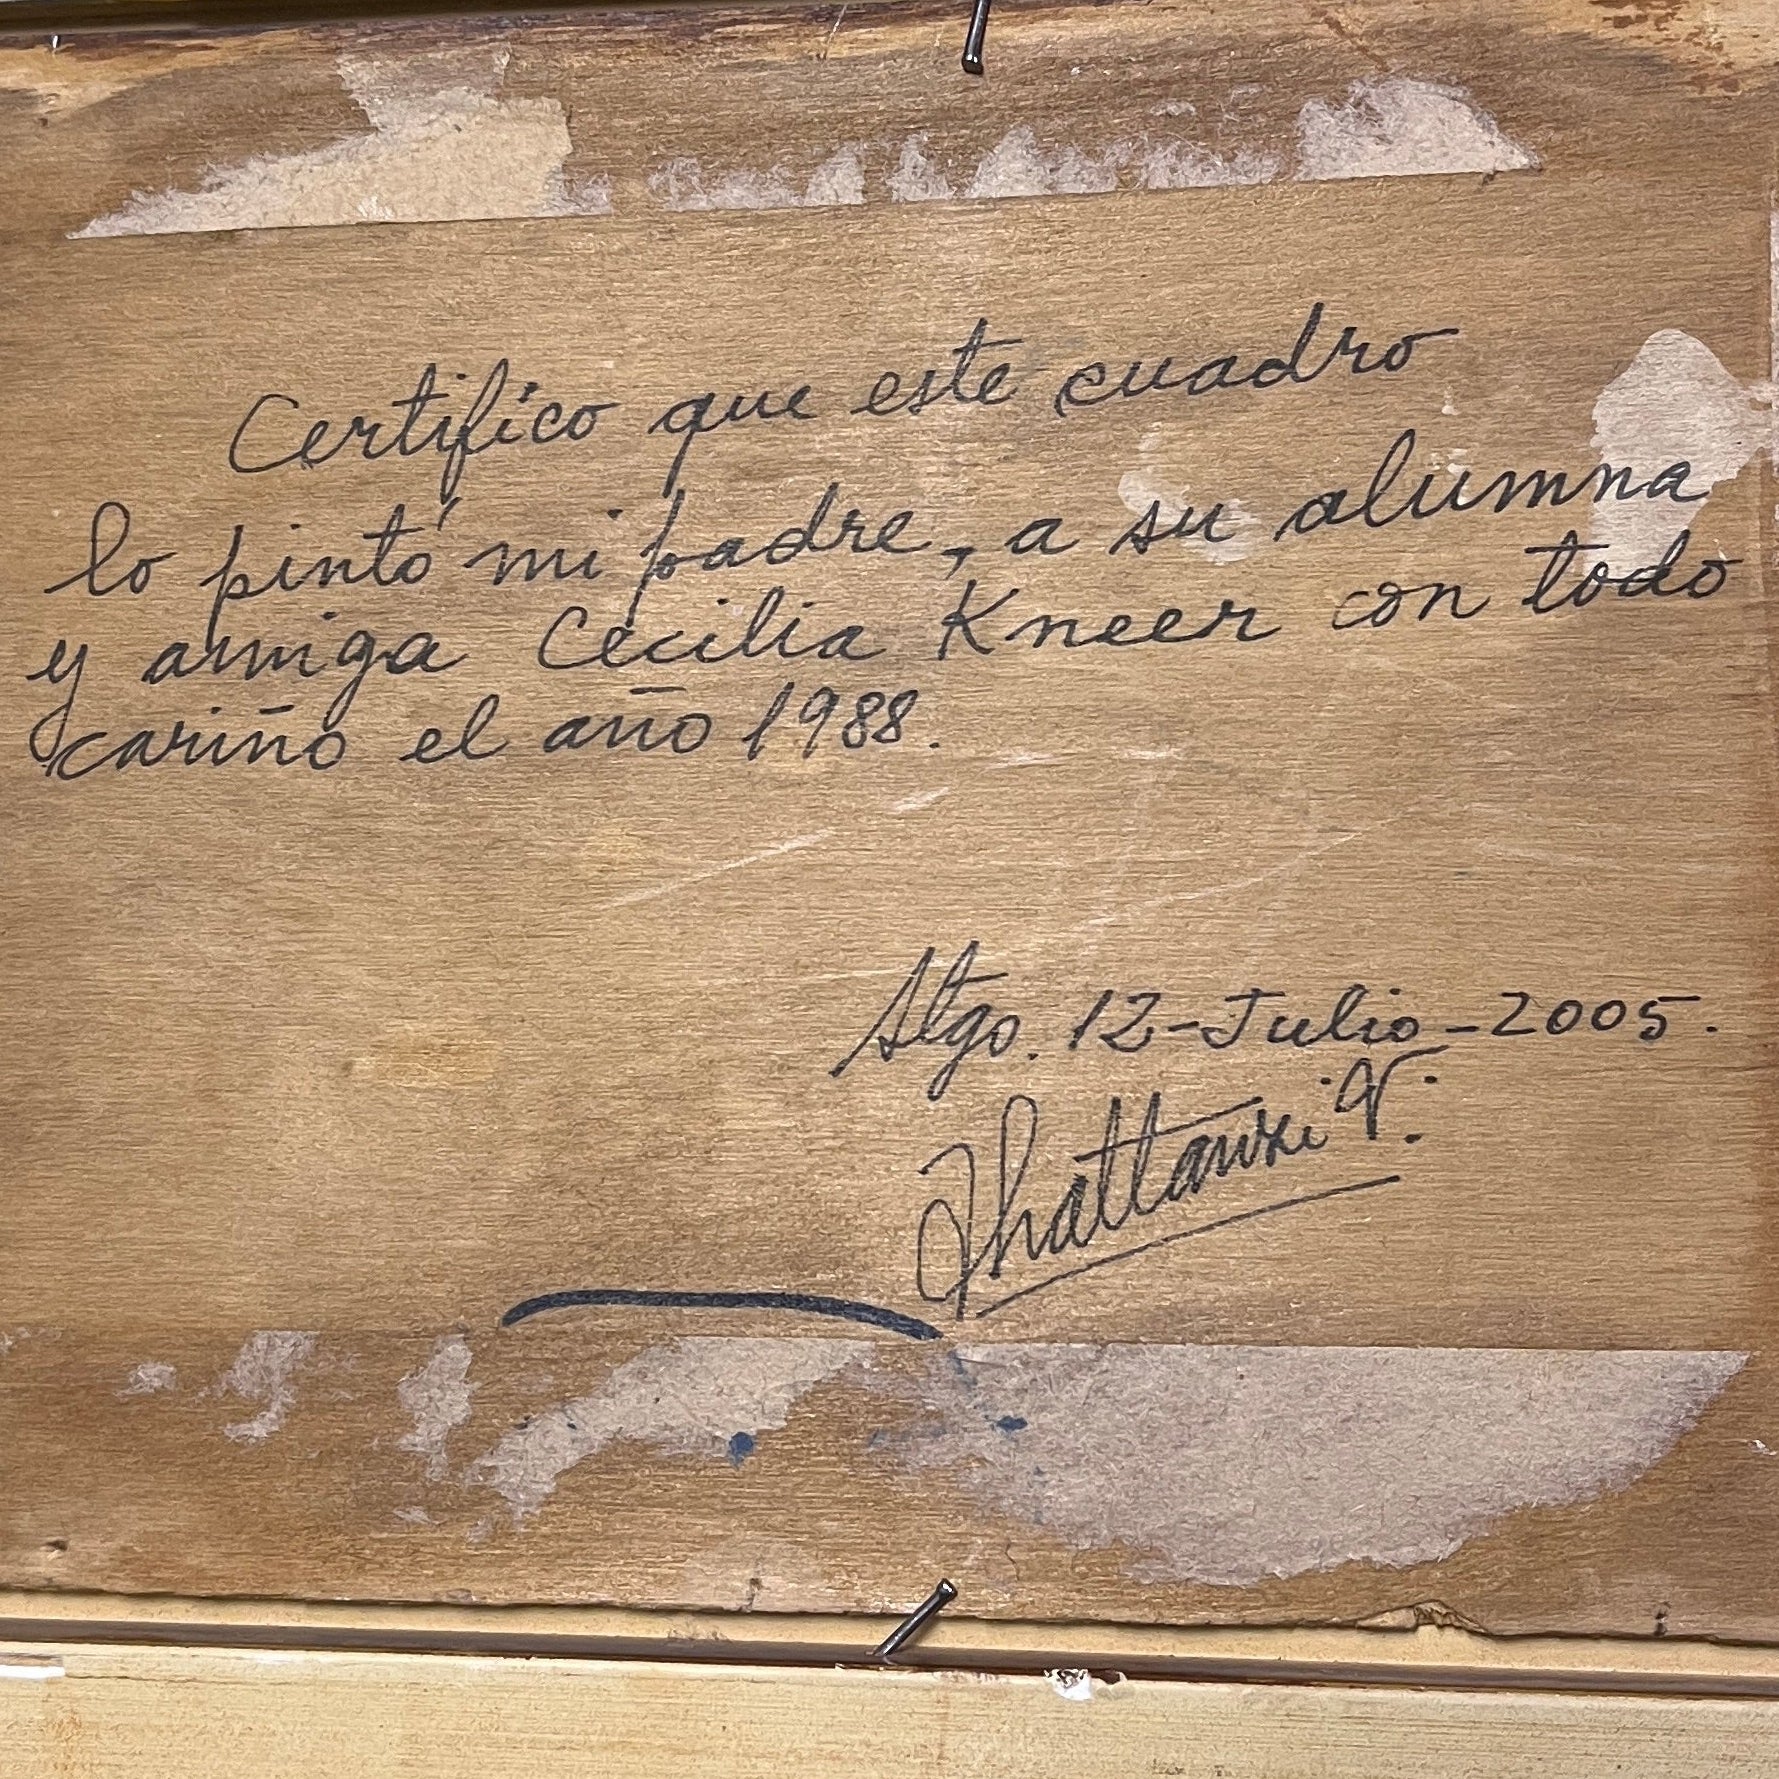 Certifico que este cuadro
lo pintó mi padre, a su alumna
y amiga Cecilia Kneer con todo
cariño el año 1988.
Stgo. 12-Julio-2005.